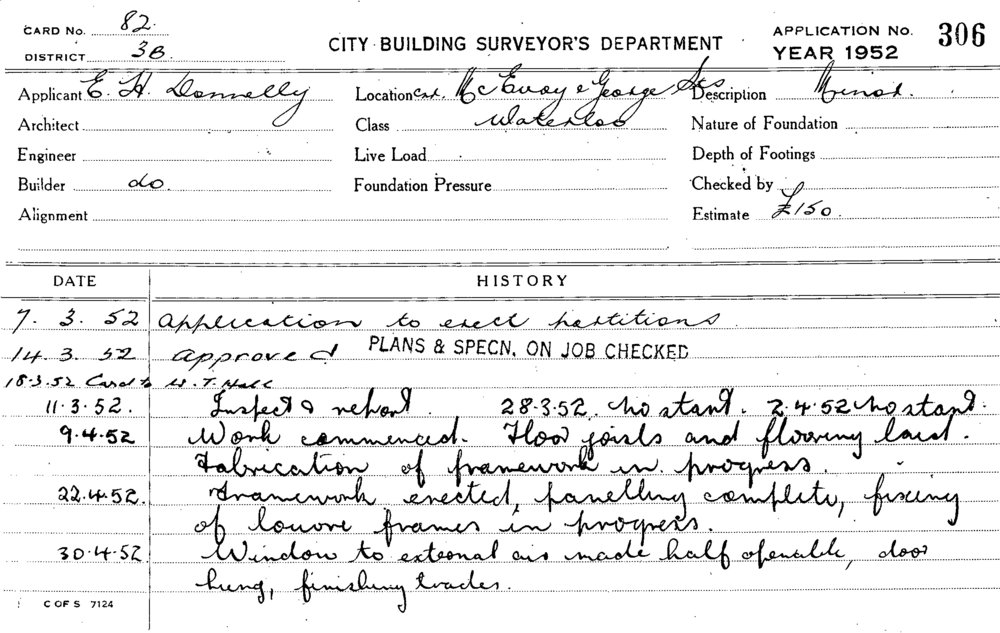 CARD No. 82. CITY BUILDING SURVEYOR'S DEPARTMENT APPLICATION No. 306
DISTRICT 3B YEAR 1952
Applicant E. H. Donnelly Location Cnr. McEvoy & George Sts Description Minor.
Architect Class Waterloo Nature of Foundation
Engineer Live Load Depth of Footings
Builder do. Foundation Pressure Checked by
Alignment Estimate £150.
DATE HISTORY
7. 3. 52 Application to erect partitions
14. 3. 52 Approved PLANS & SPECN. ON JOB CHECKED
18.3.52 Card to W. T. Hall
11.3.52. Inspect & report. 28.3.52. No start. 2.4.52 No start.
9.4.52 Work commenced. Floor joists and flooring laid.
Fabrication of framework in progress.
22.4.52. Framework erected, panelling complete, fixing
of louvre frames in progress.
30.4.52 Window to external air made half openable, door
hung, finishing trades.
C OF S 7124